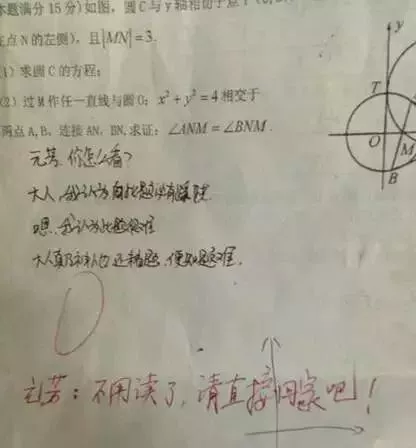 本题满分15分)如图，圆C与y轴相切于点T(0,
在点N的左侧)，且|MN|=3.
1)求圆C的方程；
(2)过M作任一直线与圆O：x²+y²=4相交于
两点A,B，连接AN，BN,求证：∠ANM=∠BNM.
y
T
O
M
B
元芳，你怎么看？
大人，我认为此题必有蹊跷.
嗯，我认为此题很难
大人真乃神人也 还看题，便知题难.
元芳：不用读了，请直接回家吧！